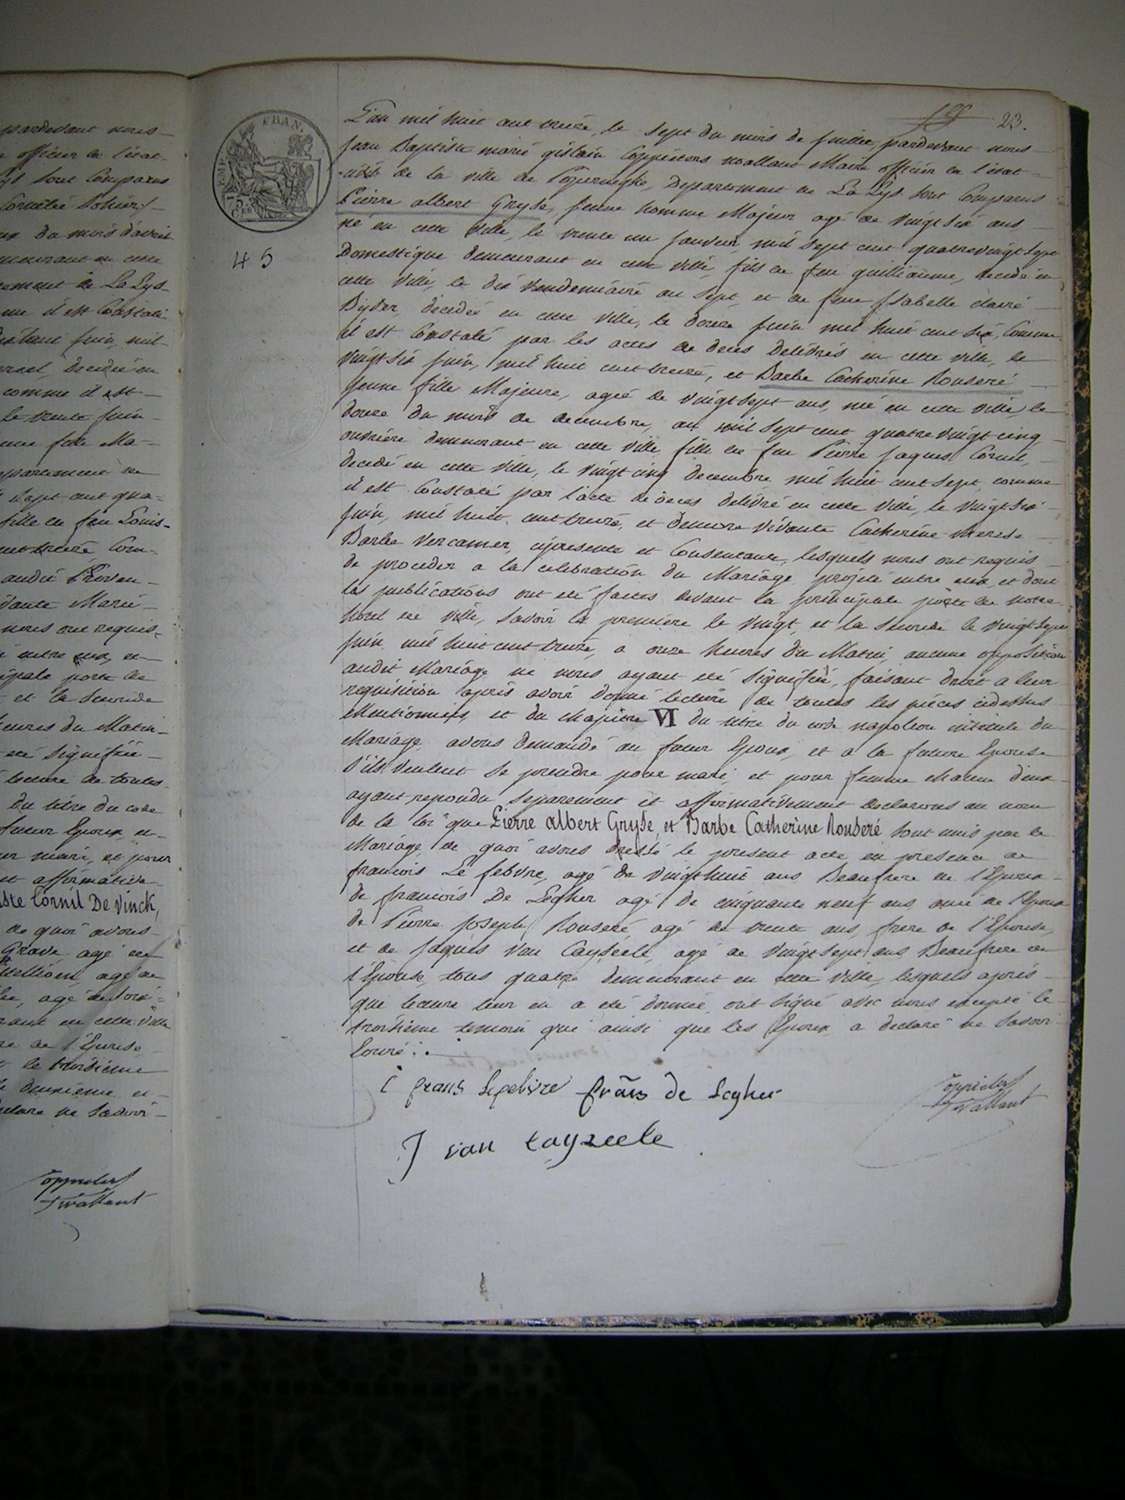 pardevant nous
officier en l'état
Lys sont Comparus
du mois d'avril
demeurant en cette
comme il est
le trente juin
fille de feu Louis
audit
vivante Marie
nous ont requis
principale porte de
et la seconde
heures du Matin
été signifiée
lecture de toutes
du titre du code
futur Epoux et
mari, et pour
et affirmative
Cornil De Vinck,
de quoi avons
Grave agé de
agé de
en cette ville
de l'Epouse
le troisième
deuxième et
déclaré ne savoir
Coppieters
Wallant
FRAN.
EMP.
75
Cen
45
23.
L'an mil huit cent treize, le sept du mois de juillet, pardevant nous
Jean Baptiste marie gislain Coppieters wallant Maire officier en l'état
civil de la ville de Poperinghe, Departement de La Lys sont Comparus
Pierre albert Gryse, jeune homme Majeur agé de vingt six ans
né en cette Ville, le trente un janvier, mil sept cent quatrevingt sept
Domestique demeurant en cette ville, fils de feu guillaume, decedé en
cette ville, le dix Vendemiaire an sept et de feue Isabelle claire
decedée en cette Ville, le douze juin mil huit cent six, Comme
il est Constaté par les actes de deces delivrés en cette ville, le
vingt six juin, mil huit cent treize, et Barbe Catherine Rouseré
jeune fille Majeure, agée de vingt sept ans, née en cette Ville le
douze du mois de decembre, an mil sept cent quatre vingt cinq
ouvrière demeurant en cette ville fille de feu Pierre Jaques Cornil,
decedé en cette Ville, le vingt cinq decembre mil huit cent sept comme
il est Constaté par l'acte de deces delivré en cette Ville, le vingt six
juin, mil huit cent treize, et demeure vivante Catherine therese
Barbe Vercamer, cipresente et Consentante, lesquels nous ont requis
de proceder a la celebration du Mariage projeté entre eux, et dont
les publications ont été faites devant la principale porte de notre
hotel de ville, savoir la première le vingt, et la seconde le vingt sept
juin, mil huit cent treize, a onze heures du Matin, aucune opposition
audit Mariage ne nous ayant été signifiée, faisant droit a leur
requisition après avoir donné lecture de toutes les pièces cidessus
Mentionnées et du chapitre VI du titre du code napoleon intitulé du
Mariage avons demandé au futur Epoux, et a la future Epouse
s'ils veulent se prendre pour mari, et pour femme chacun d'eux
ayant repondu separement et affirmativement declarons au nom
de la loi que Pierre albert Gryse, et Barbe Catherine Rouseré sont unis par le
Mariage de quoi avons dressé le present acte, en presence de
francois Le febvre, agé de vingt huit ans Beaufrere de l'Epoux
de francois De Segher agé de cinquante neuf ans ami de l'Epoux
de Pierre Joseph Rouseré agé de trente ans frere de l'Epouse,
et de Jaques Van Cayseele, agé de vingt sept ans Beaufrere de
l'Epouse, tous quatre demeurant en cette Ville, lesquels après
que lecture leur en a été donnée ont signé avec nous excepté le
troisième temoin qui ainsi que les Epoux a declaré ne Savoir
Ecrire
frans Lefebvre frãns de Segher
J van Cayzeele
Coppieters
Wallant